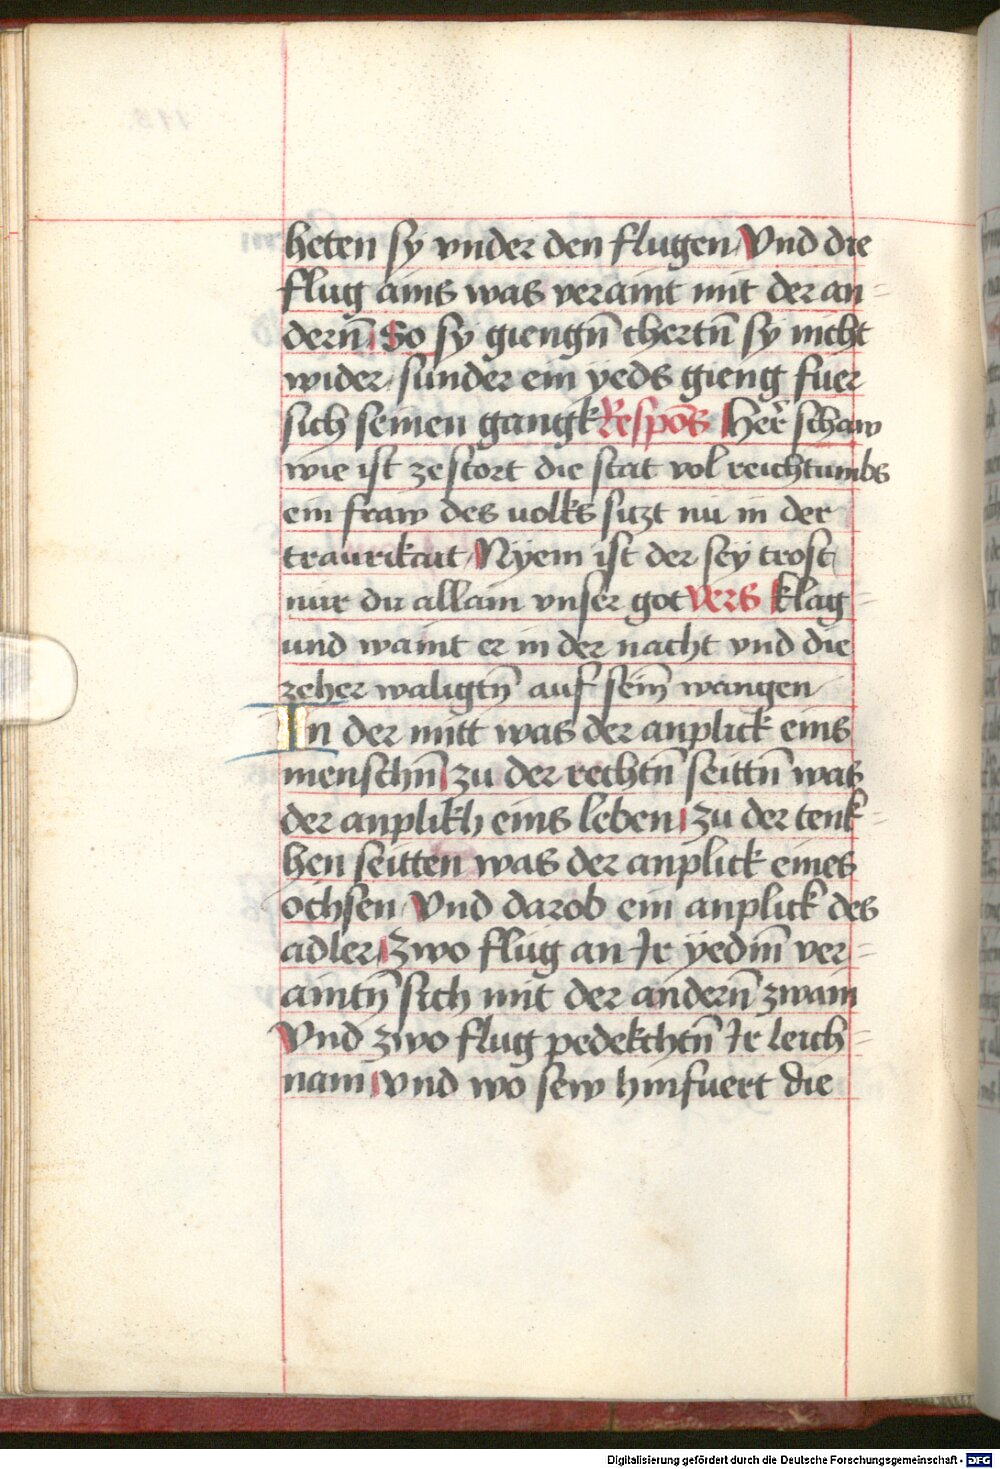 heten sy vnder den flugen Vnd die
flug ains was veraint mit der an=
dern̄ So sy giengn̄ chertn̄ sy nicht
wider sunder ein yeds gieng fuer
sich seinen gangk Respōs Her̄ schaw
wie ist zestort die stat vol reichtumbs
ein fraw des uolks siczt nu in der
traurikait Nyem ist der sey trost
nur du allain vnser got vers klag=
und waint er in der nacht vnd die
zeher waligtn̄ auf sein̄ wangen
In der mitt was der anplick eins
menschn̄ zu der rechtn̄ seittn̄ was
der anplikh eins leben zu der tenk=
hen seitten was der anplick eines
ochsen Vnd darob ein anplick des
adler Zwo flug an Ir yedm̄ ver=
aintn̄ sich mit der andern̄ zwain
Vnd zwo flug pedekchtn̄ Ir leich=
nam vnd wo sew hinfuert die
Digitalisierung gefördert durch die Deutsche Forschungsgemeinschaft - DFG